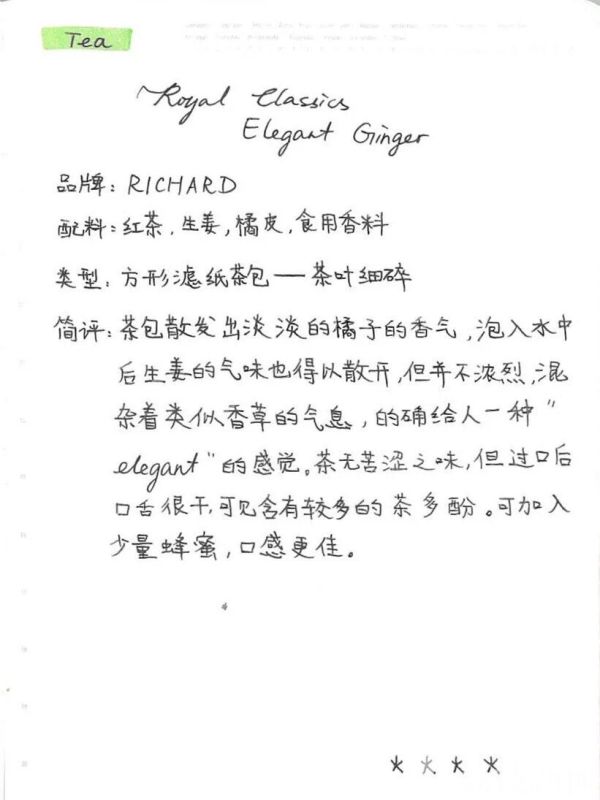 Tea
Royal Classics
Elegant Ginger
品牌: RICHARD
配料: 红茶, 生姜, 橘皮, 食用香料
类型: 方形滤纸茶包——茶叶细碎
简评: 茶包散发出淡淡的橘子的香气,泡入水中
后生姜的气味也得以散开,但并不浓烈,混
杂着类似香草的气息,的确给人一种"
elegant"的感觉。茶无苦涩之味,但过口后
口舌很干,可见含有较多的茶多酚。可加入
少量蜂蜜,口感更佳。